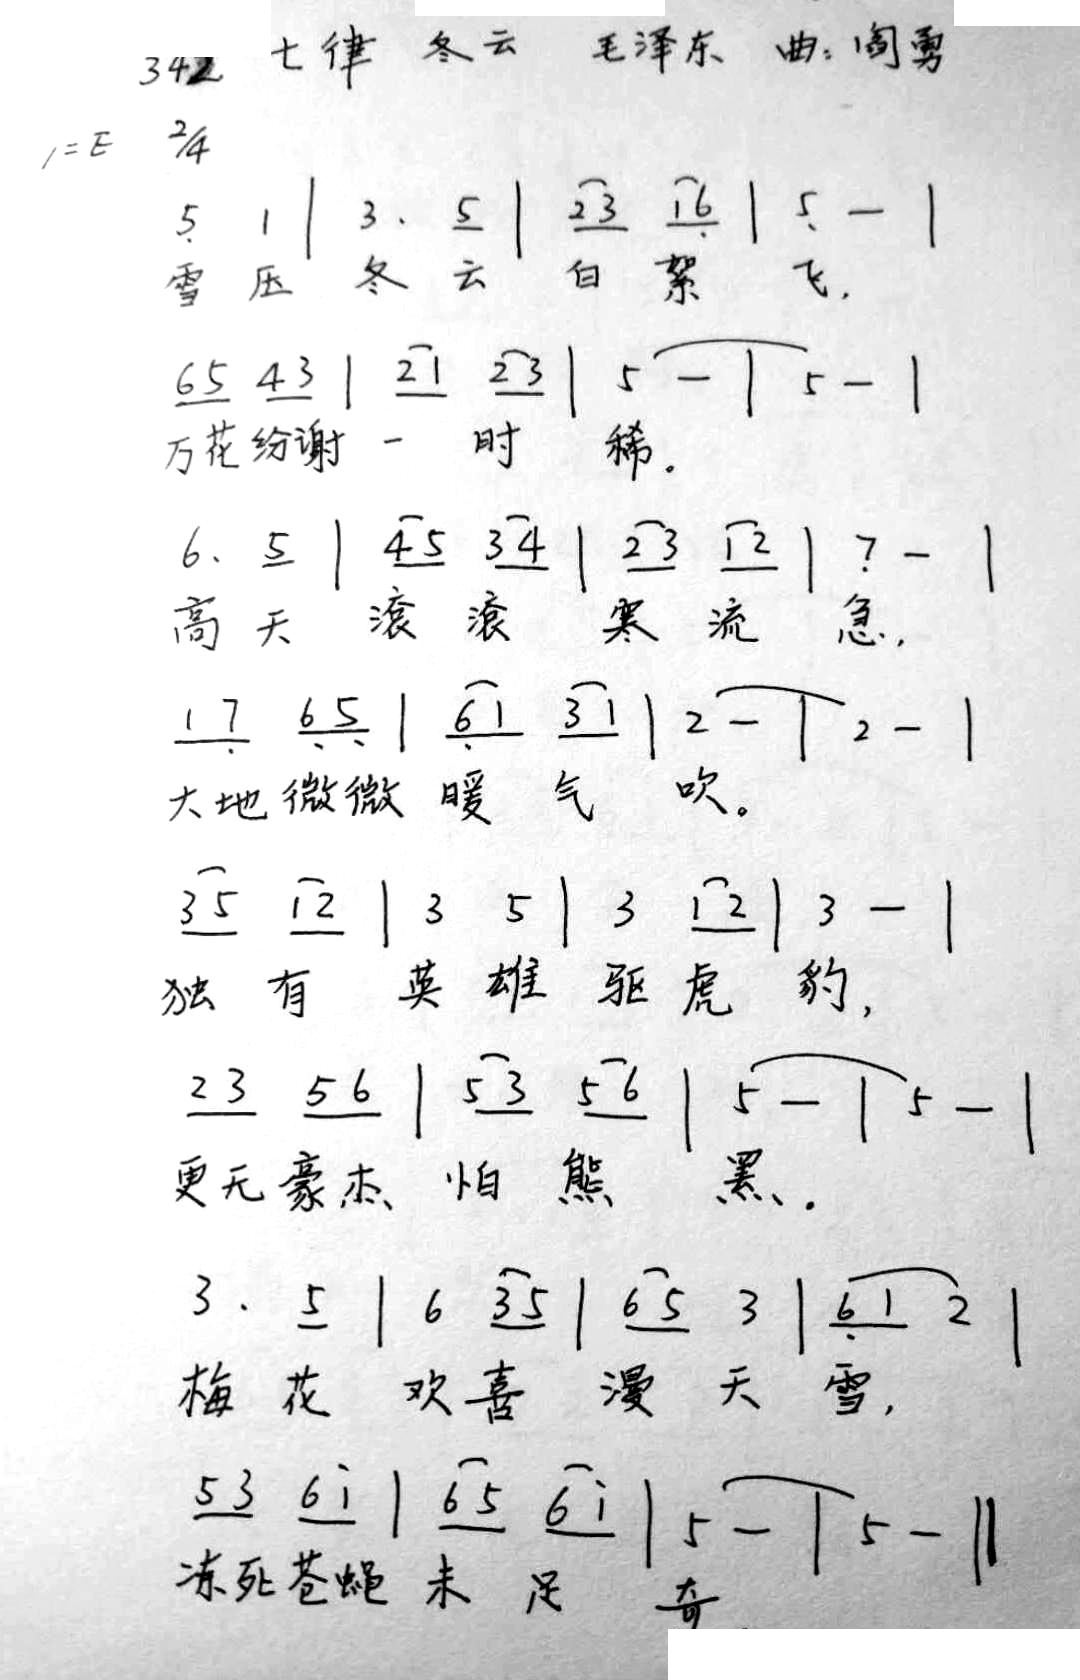 342 七律 冬云 毛泽东 曲:阎勇
1=E 2/4
5 1 | 3. 5 | 23 16 | 5 - |
雪压冬云白絮飞,
65 43 | 21 23 | 5 - | 5 - |
万花纷谢一时稀。
6. 5 | 45 34 | 23 12 | 7 - |
高天滚滚寒流急,
17 65 | 61 31 | 2 - | 2 - |
大地微微暖气吹。
35 12 | 3 5 | 3 12 | 3 - |
独有英雄驱虎豹,
23 56 | 53 56 | 5 - | 5 - |
更无豪杰怕熊罴。
3. 5 | 6 35 | 65 3 | 61 2 |
梅花欢喜漫天雪,
53 61 | 65 61 | 5 - | 5 - ‖
冻死苍蝇未足奇